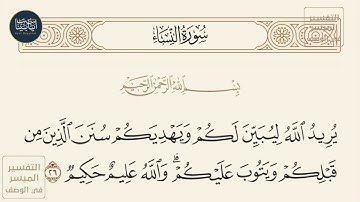 سُورَةُ النِّسَاءِ
التفسير
الميسر
بِسْمِ اللَّهِ الرَّحْمَٰنِ الرَّحِيمِ
يُرِيدُ اللَّهُ لِيُبَيِّنَ لَكُمْ وَيَهْدِيَكُمْ سُنَنَ الَّذِينَ مِن
قَبْلِكُمْ وَيَتُوبَ عَلَيْكُمْ ۗ وَاللَّهُ عَلِيمٌ حَكِيمٌ ٢٦
التفسير
الميسر
في الوصف